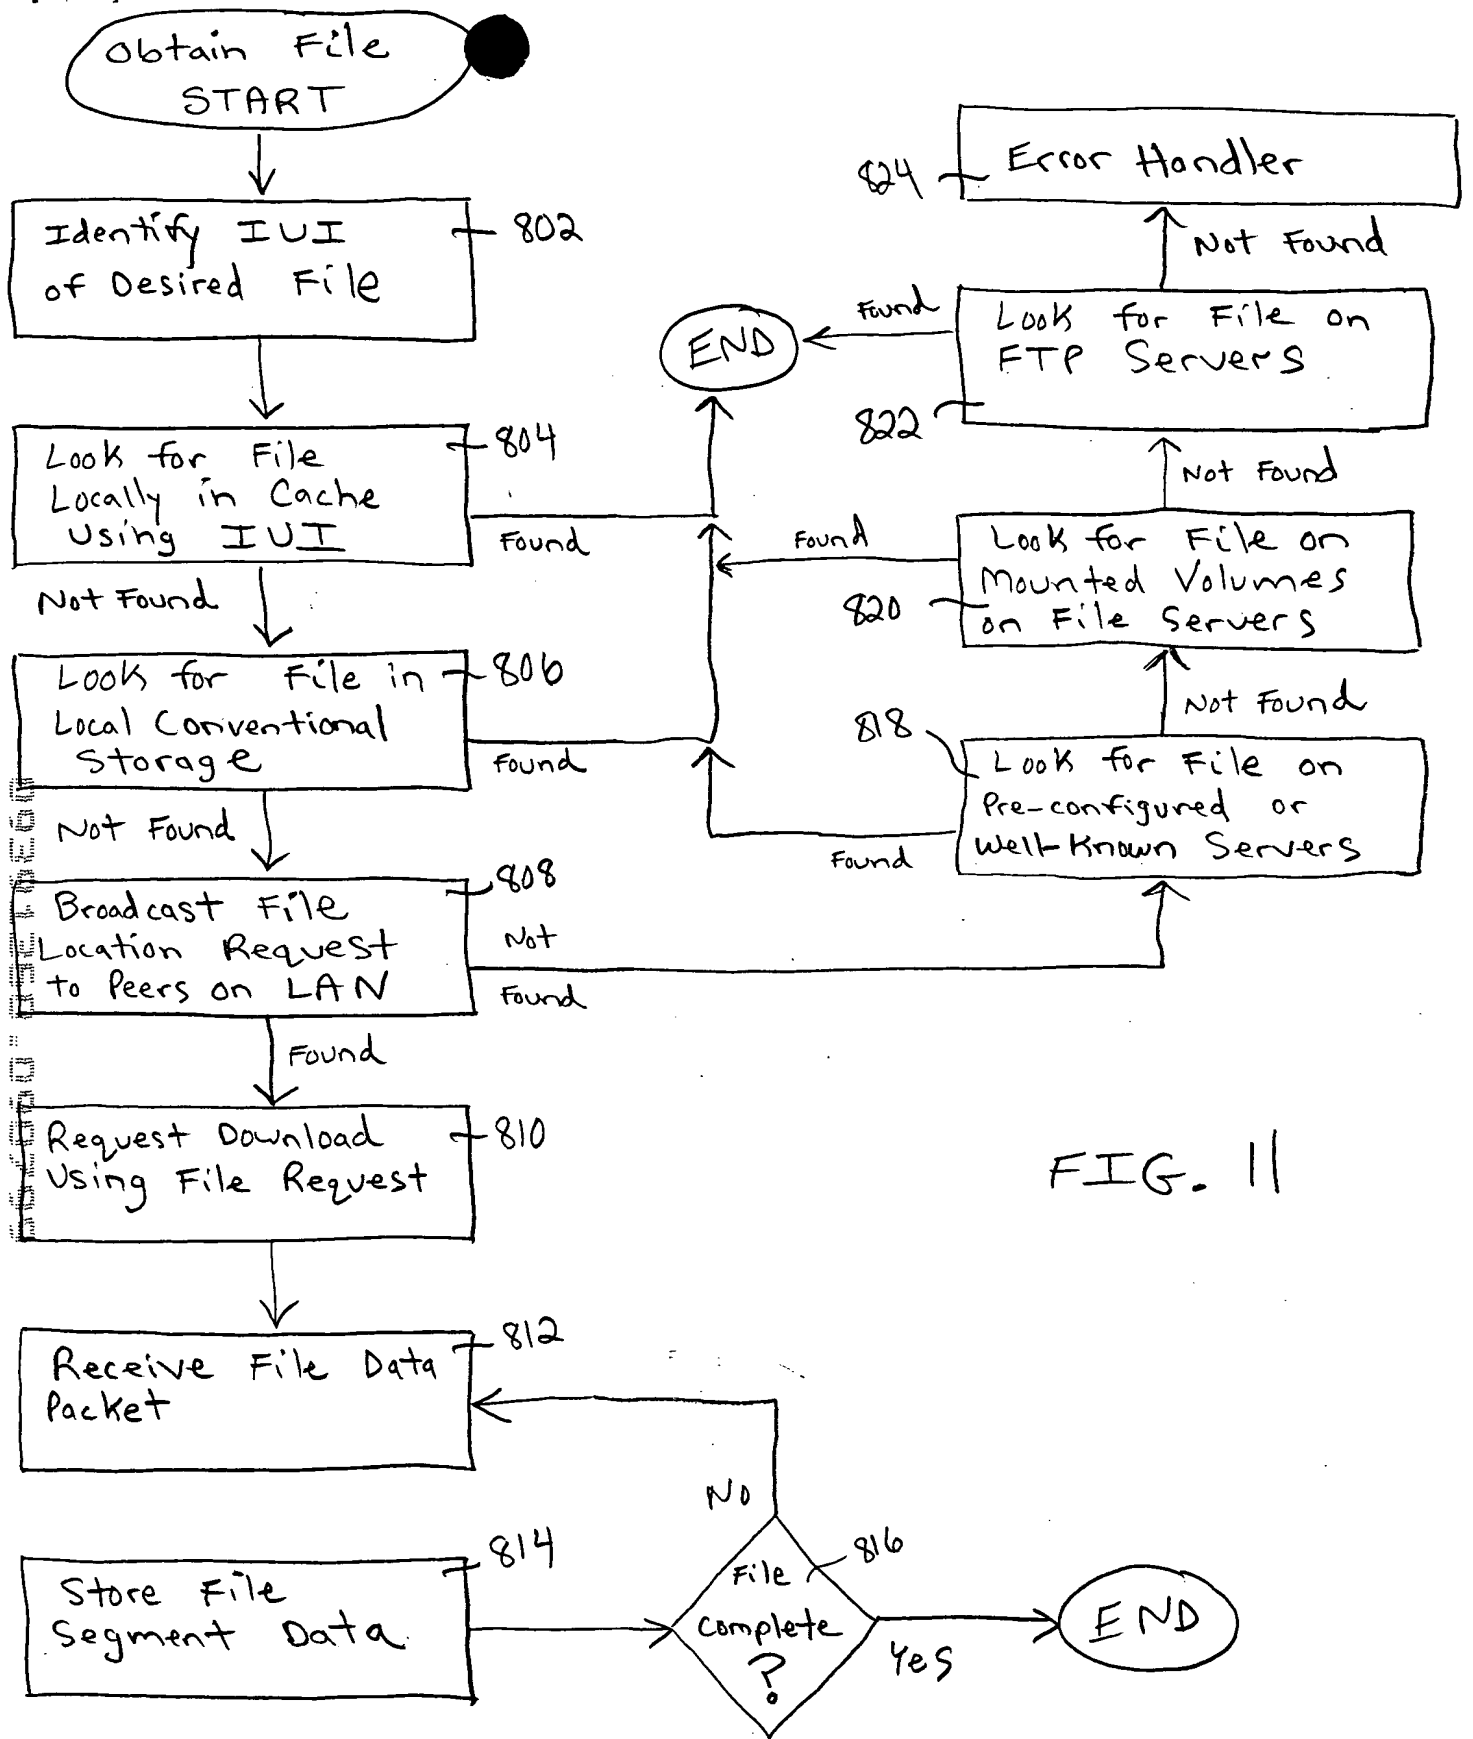 Obtain File
START
Identify IUI
of Desired File
802
Look for File
Locally in Cache
Using IUI
804
Found
Not Found
Look for File in
Local Conventional
Storage
806
Found
Not Found
Broadcast File
Location Request
to Peers on LAN
808
Not
Found
Found
Request Download
Using File Request
810
Receive File Data
Packet
812
Store File
Segment Data
814
File
Complete
?
816
No
Yes
END
END
Error Handler
824
Not Found
Look for File on
FTP Servers
822
Found
Not Found
Look for File on
Mounted Volumes
on File Servers
820
Found
Not Found
Look for File on
Pre-configured or
Well-Known Servers
818
Found
FIG. 11